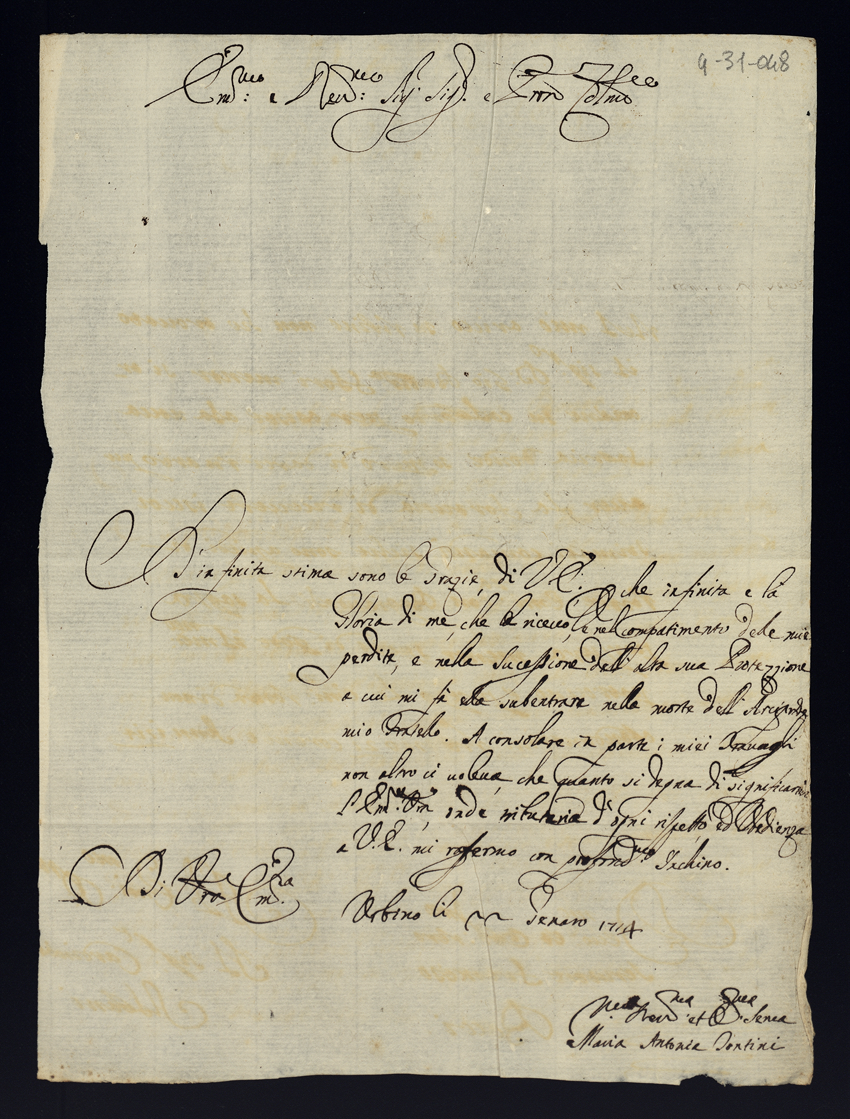 9-31-048
Em.mo e Rev.mo Sig. Sig. e Pron Colmo
D'infinita stima sono le Grazie, di V.E. che infinita e la
Gloria di me, che le ricevo, e nel compatimento delle mie
perdite, e nella sucessione dell'alta sua Protezzione
a cui mi fà ella subentrare nella morte dell'
mio Fratello. A consolare in parte i miei Travagli
non altro ci voleva, che quanto si degna di significarmi
l'Em.za Vra, onde tributaria d'ogni rispetto, ed Obedienza
a V.E. mi rafermo con profond.mo Inchino.
Di Vra Em.za
Urbino li Genaro 1714
et Serva
Maria Antonia